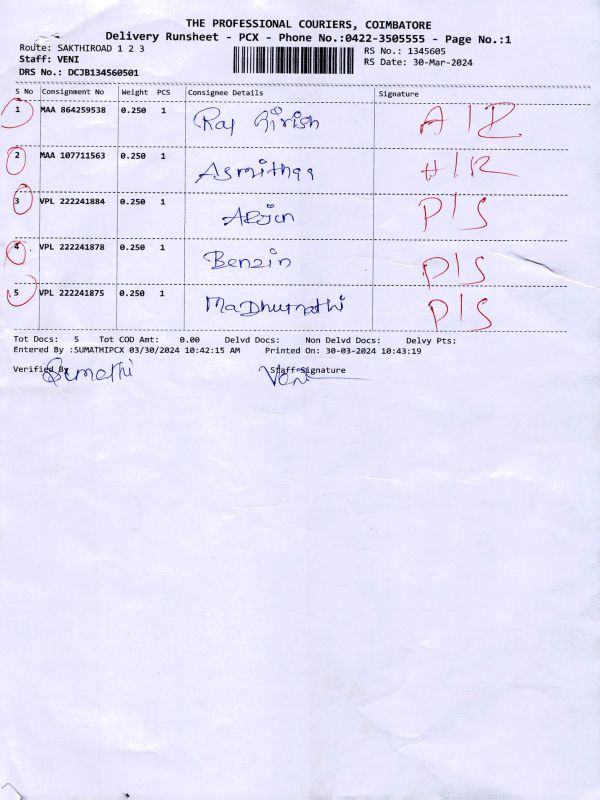 THE PROFESSIONAL COURIERS, COIMBATORE
Delivery Runsheet - PCX - Phone No.:0422-3505555 - Page No.:1
Route: SAKTHIROAD 1 2 3 RS No.: 1345605
Staff: VENI RS Date: 30-Mar-2024
DRS No.: DCJB134560501
S No Consignment No Weight PCS Consignee Details Signature
1 MAA 864259538 0.250 1 Raj Girish
2 MAA 107711563 0.250 1 Asmithaa
3 VPL 222241884 0.250 1 Arjun P/S
4 VPL 222241878 0.250 1 Benzin P/S
5 VPL 222241875 0.250 1 MaDhumathi P/S
Tot Docs: 5 Tot COD Amt: 0.00 Delvd Docs: Non Delvd Docs: Delvy Pts:
Entered By :SUMATHIPCX 03/30/2024 10:42:15 AM Printed On: 30-03-2024 10:43:19
Verified By Sumathi Staff Signature Veni